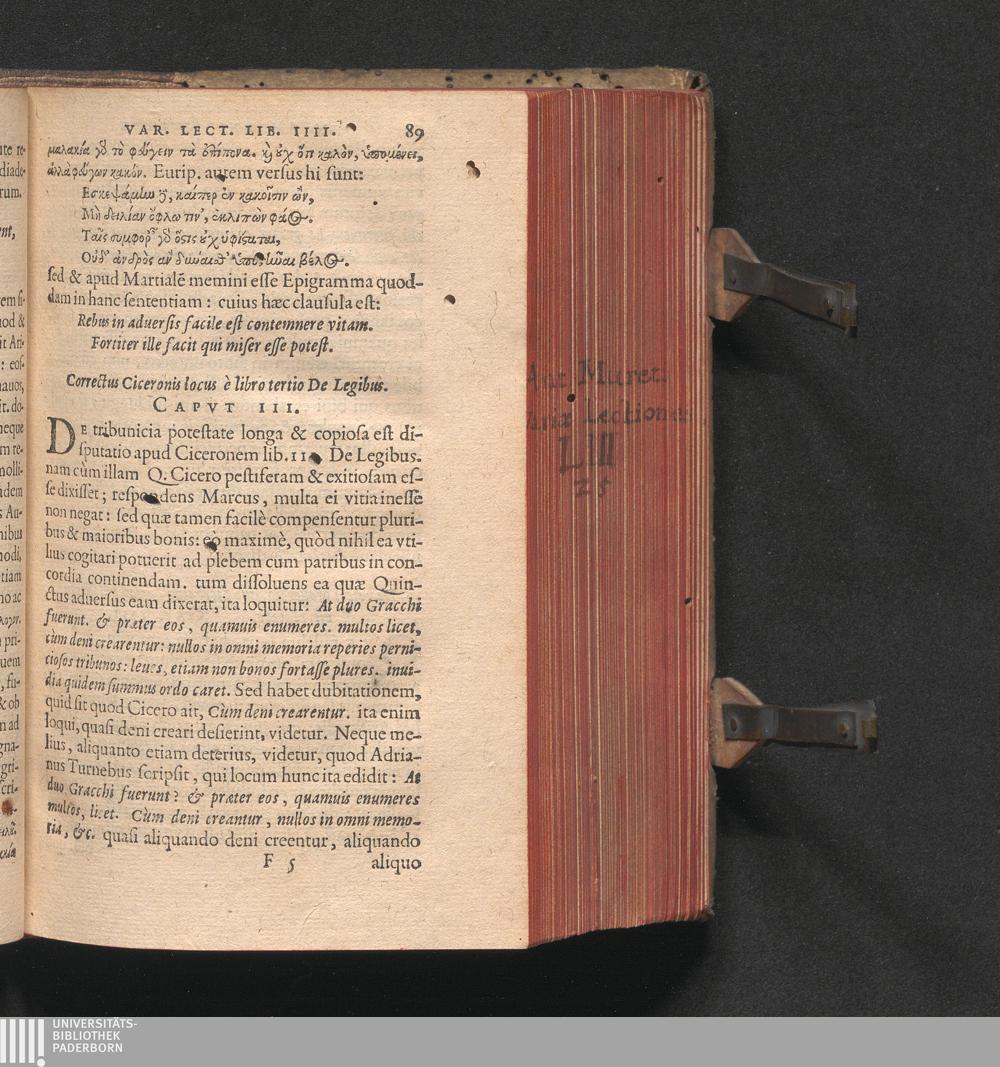 VAR. LECT. LIB. IIII. 89
μαλακία γὸ τὸ φεύγειν τὰ ἐπίπονα. ϗ ȣ̓χ ὅτι καλὸν, ὑπομένει,
ἀλλὰ φεύγων κακόν. Eurip. autem versus hi sunt:
Εσκεψάμην ϳ, καίπερ ἐν κακοῖσιν ὢν,
Μὴ δειλίαν ὄφλω τιν', ἐκλιπὼν φάος.
Ταῖς συμφορ γὸ ὅστις ȣ̓χ ὑφίσταται,
Οὐδ' ἀνδρὸς ἂν δύναιθ' βέλος.
sed & apud Martialē memini esse Epigramma quod-
dam in hanc sententiam: cuius hæc clausula est:
Rebus in aduersis facile est contemnere vitam.
Fortiter ille facit qui miser esse potest.
Correctus Ciceronis locus è libro tertio De Legibus.
CAPVT III.
DE tribunicia potestate longa & copiosa est di-
sputatio apud Ciceronem lib. De Legibus.
nam cùm illam Q. Cicero pestiferam & exitiosam es-
se dixisset; respondens Marcus, multa ei vitia inesse
non negat: sed quæ tamen facilè compensentur pluri-
bus & maioribus bonis: eò maximè, quòd nihil ea vti-
lius cogitari potuerit ad plebem cum patribus in con-
cordia continendam. tum dissoluens ea quæ Quin-
ctus aduersus eam dixerat, ita loquitur: At duo Gracchi
fuerunt. & præter eos, quamuis enumeres. multos licet,
cùm deni crearentur: nullos in omni memoria reperies perni-
ciosos tribunos: leues, etiam non bonos fortasse plures. inui-
dia quidem summus ordo caret. Sed habet dubitationem,
quid sit quod Cicero ait, Cùm deni crearentur. ita enim
loqui, quasi deni creari desierint, videtur. Neque me-
lius, aliquanto etiam deterius, videtur, quod Adria-
nus Turnebus scripsit, qui locum hunc ita edidit: At
duo Gracchi fuerunt? & præter eos, quamuis enumeres
multos, licet. Cùm deni creantur, nullos in omni memo-
ria, &c. quasi aliquando deni creentur, aliquando
F 5 aliquo
Ant Muret.
Variæ Lectiones
LIII
25
UNIVERSITÄTS-
BIBLIOTHEK
PADERBORN